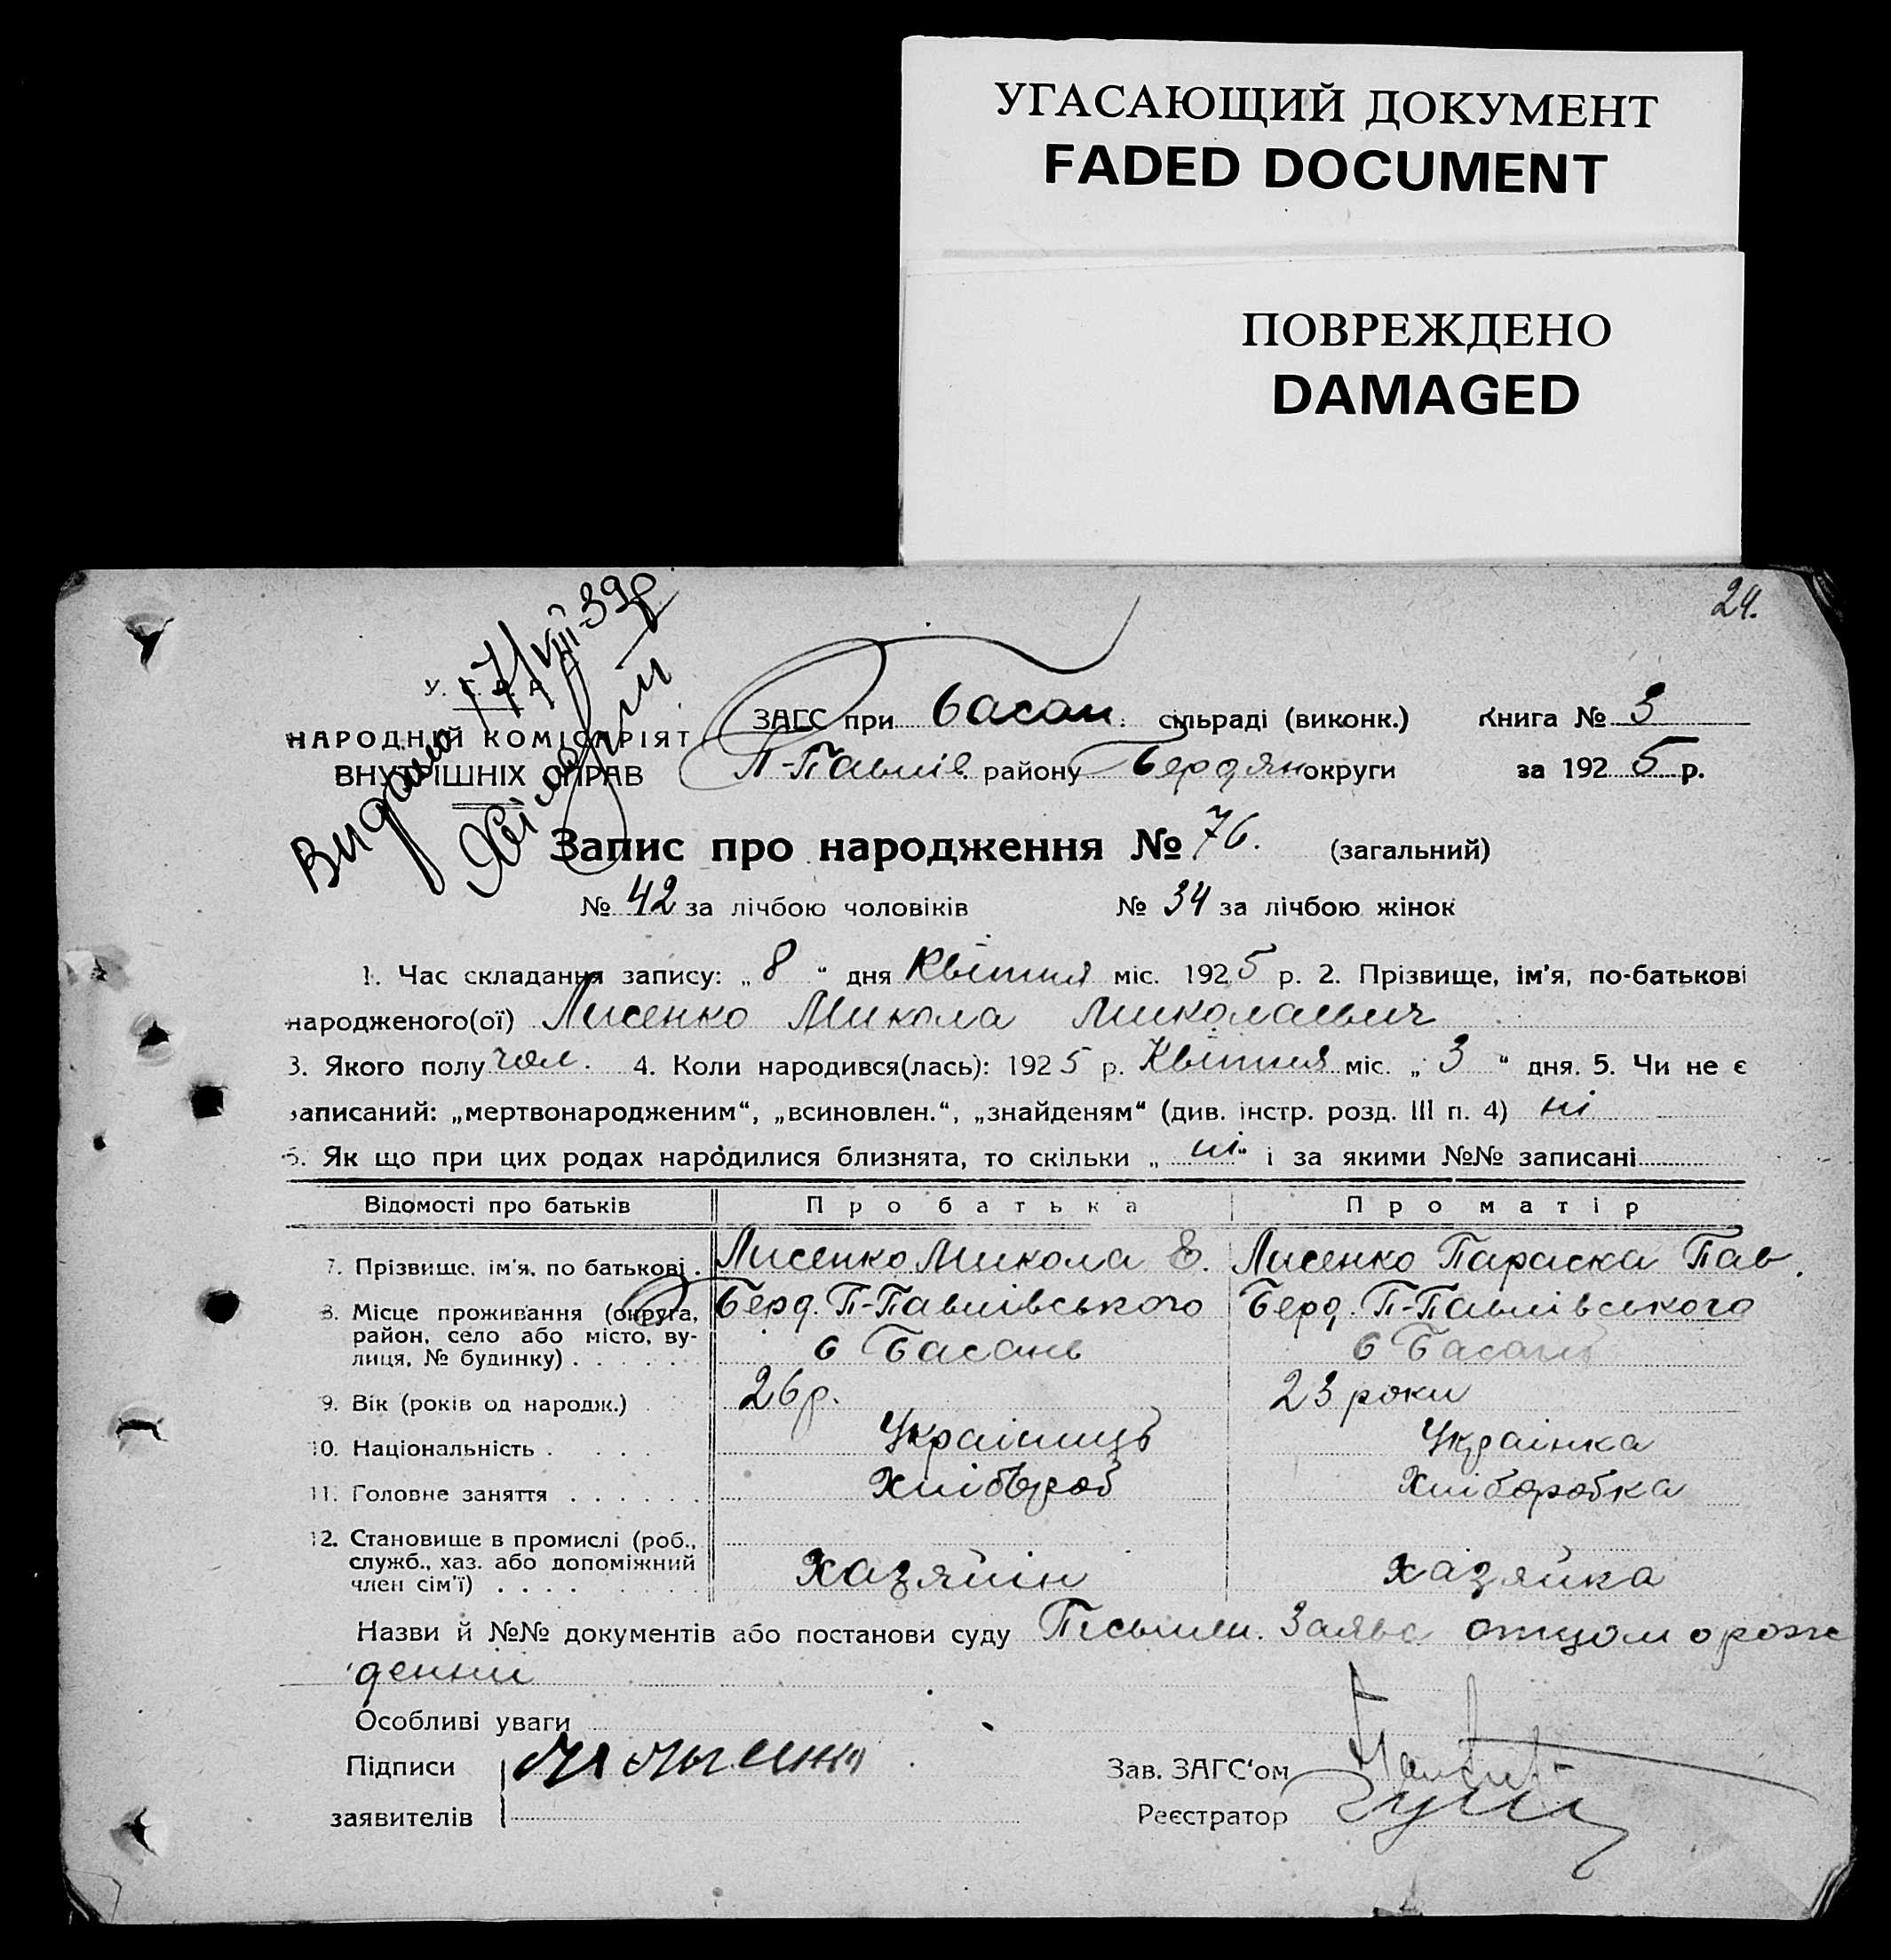 УГАСАЮЩИЙ ДОКУМЕНТ
FADED DOCUMENT
ПОВРЕЖДЕНО
DAMAGED
24.
Видано 17/VIII-39р
У. С. Р. Р.
НАРОДНІЙ КОМІСАРІЯТ
ВНУТРІШНІХ СПРАВ
ЗАГС при Басан. сільраді (виконк.) Книга № 3
П-Павлів. району Бердян округи за 1925 р.
Запис про народження № 76. (загальний)
№ 42 за лічбою чоловіків № 34 за лічбою жінок
1. Час складання запису: „ 8 “ дня Квітня міс. 1925 р. 2. Прізвище, ім'я, по-батькові
народженого(ої) Лисенко Микола Миколаевич
3. Якого полу чол. 4. Коли народився(лась): 1925 р. Квітня міс. „ 3 “ дня. 5. Чи не є
записаний: „мертвонародженим“, „всиновлен.“, „знайденям“ (див. інстр. розд. III п. 4) ні
6. Як що при цих родах народилися близнята, то скільки „ ні “ і за якими №№ записані
Відомості про батьків Про батька Про матір
7. Прізвище, ім'я, по батькові . Лисенко Микола Є. Лисенко Параска Пав.
8. Місце проживання (округа, Берд. П-Павлівського Берд. П-Павлівського
район, село або місто, ву-
лиця, № будинку) . . . . . . Басань Басань
9. Вік (років од народж.) 26р. 23 роки
10. Національність . . . . Україниць Українка
11. Головне заняття . . . . . . Хлібороб Хліборобка
12. Становище в промислі (роб.,
служб., хаз. або допоміжний
член сім'ї) . . . . Хазяйін хазяйка
Назви й №№ документів або постанови суду Письмен. Заява отцом о рож
дении
Особливі уваги
Підписи Зав. ЗАГС'ом
заявителів Реєстратор